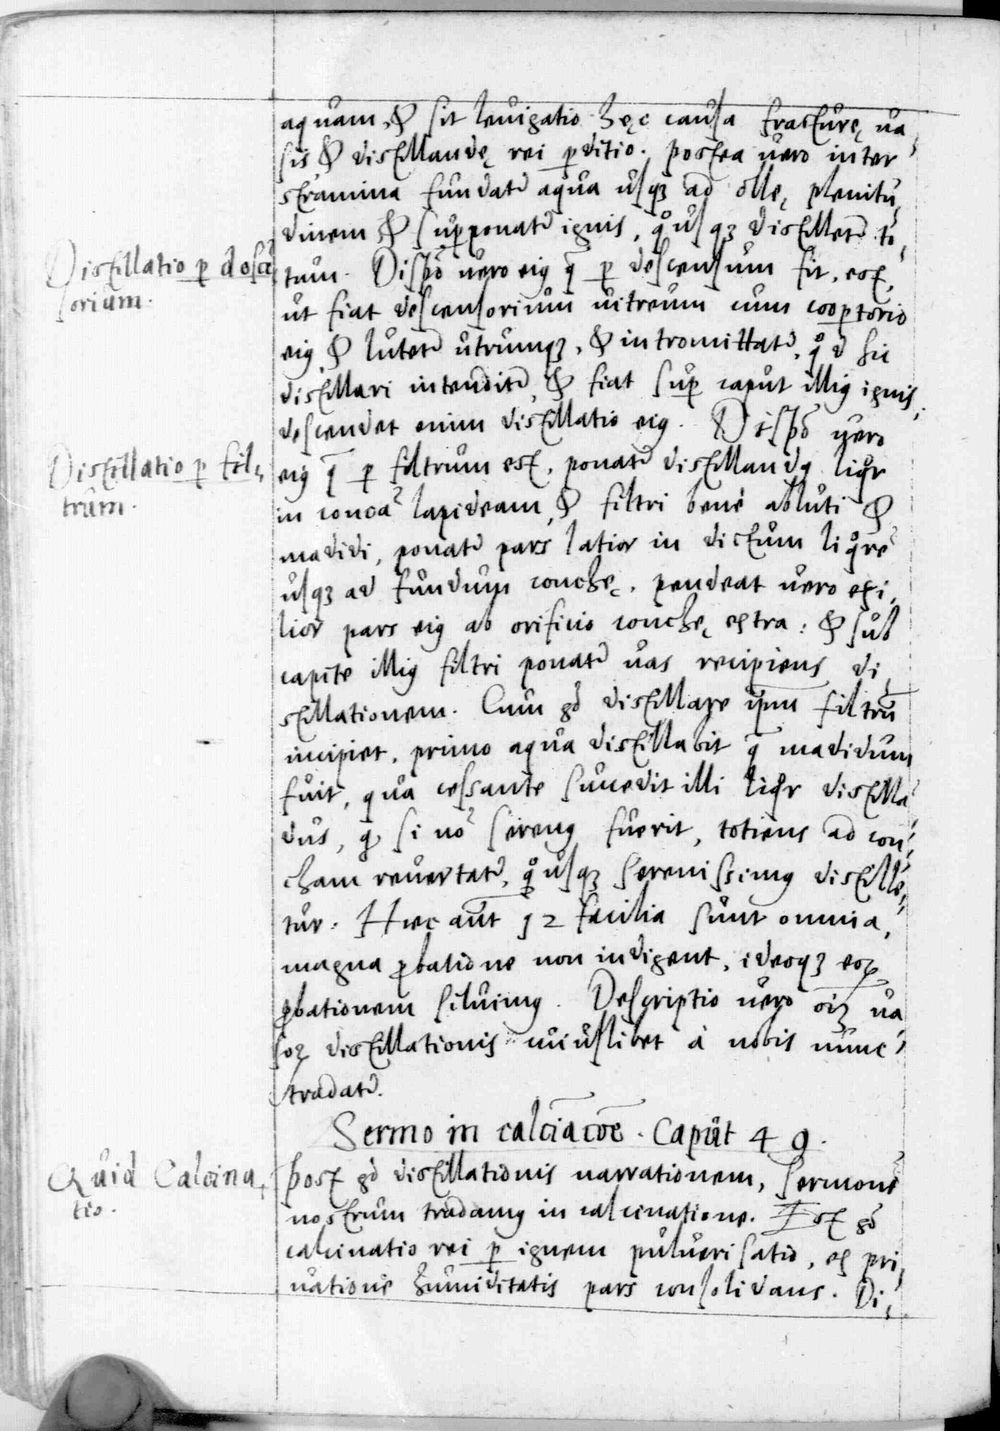 aquam, & sit leuigatio hęc causa fracturę ua,
sis & distillandę rei pditio. postea uero inter
stramina fundat aqua usqȝ ad ollę plenitu,
dinem & supponat ignis, qusqȝ distillet to,
Distillatio p desce
sorium.
tum. Dispo uero eiꝰ q p descensum fit, est,
ut fiat descensorium uitreum cum cooptorio
eiꝰ & lutet utrumqȝ, & intromittat, qd sic
distillari intendit, & fiat sup caput illiꝰ ignis,
descendet enim distillatio eiꝰ. Dispo uero
Distillatio p fil,
trum.
eiꝰ q p filtrum est, ponat distillandꝰ liqr
in conca lapideam, & filtri bene abluti &
madidi, ponat pars latior in dictum liqre
usqȝ ad fundum conchę, pendeat uero exi,
lior pars eiꝰ ab orificio conchę extra: & sub
capite illiꝰ filtri ponat uas recipiens di,
stillationem. Cum go distillare ipm filtru
incipiet, primo aqua distillabit q madidum
fuit, qua cessante succedit illi liqr distilla,
dus, q si no serenꝰ fuerit, totiens ad con,
cham reuertat, qusqȝ serenissimꝰ distille,
tur. Hec aut 12 facilia sunt omnia,
magna pbatione non indigent, ideoqȝ eoꝝ
pbationem siluimꝰ. Descriptio uero oiȝ ua
soꝝ distillationis cuiuslibet à nobis nunc
tradat.
Sermo in calciacoe. Caput 49.
Quid Calcina,
tio.
Post go distillationis narrationem, sermone
nostrum tradamꝰ in calcinatione. Est go
calcinatio rei p ignem puluerisatio, ex pri,
uatione humiditatis pars consolidans. Di,